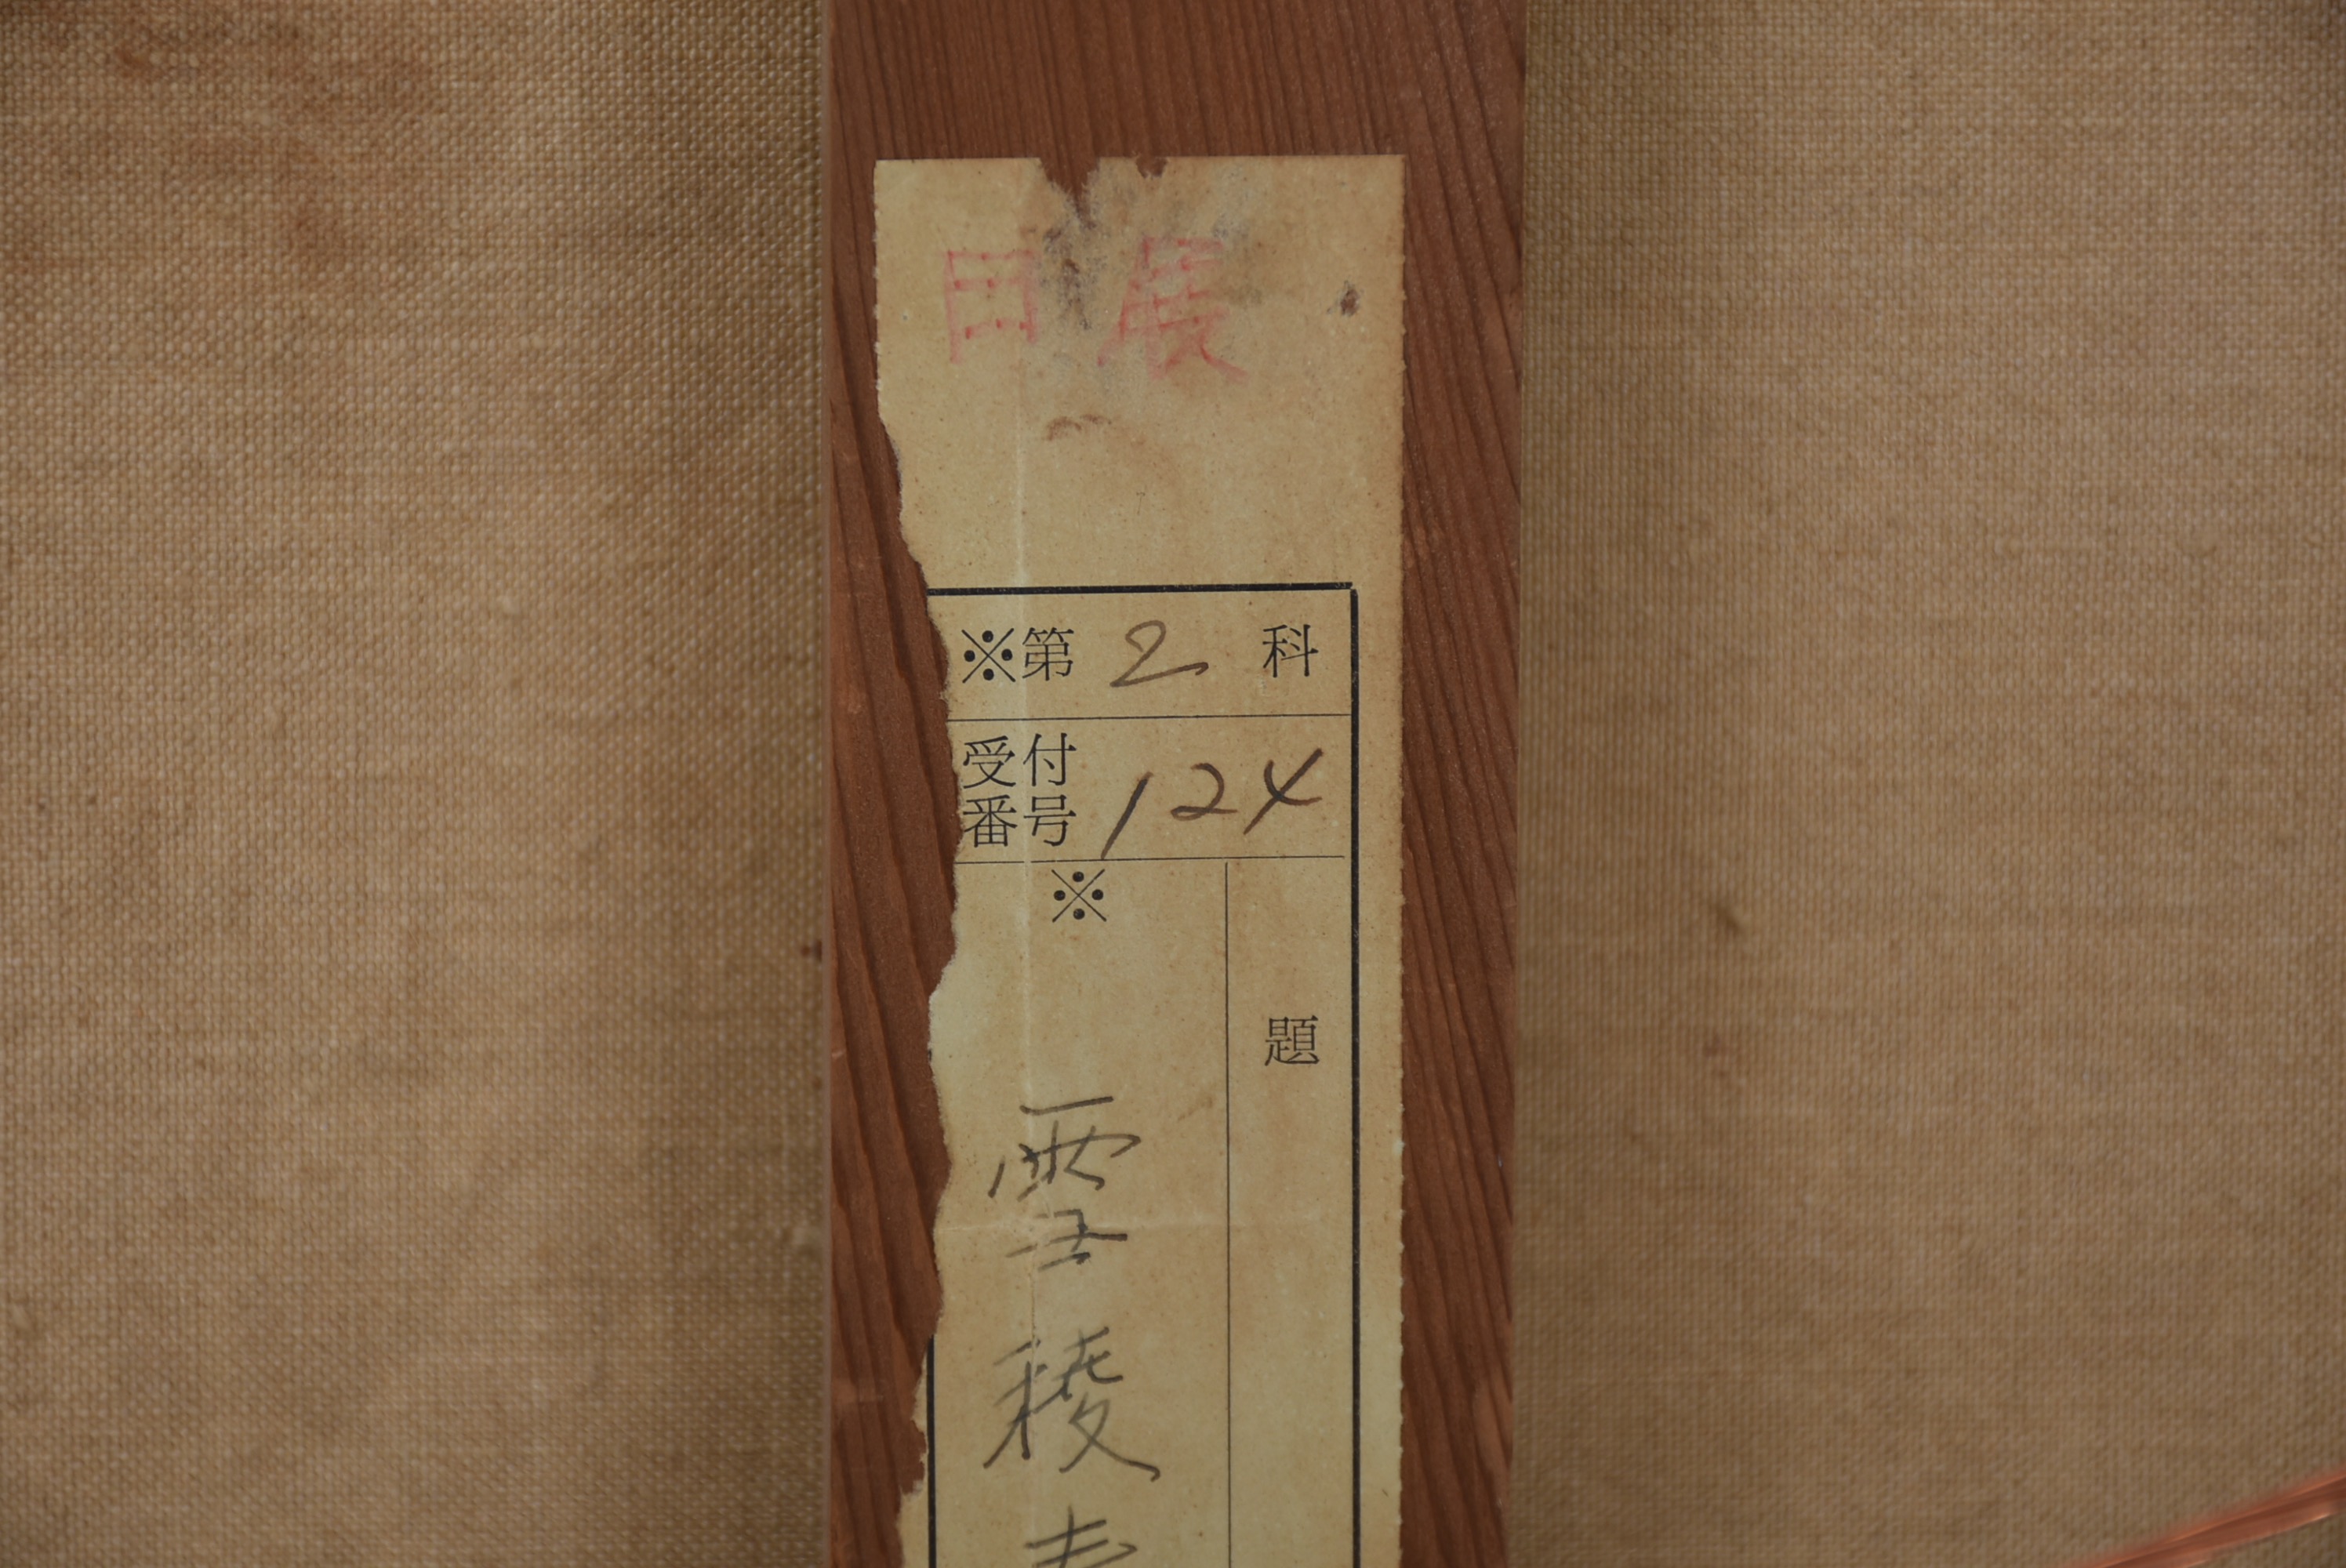 日展
※第 2 科
受付番号 124
※
題
雪稜